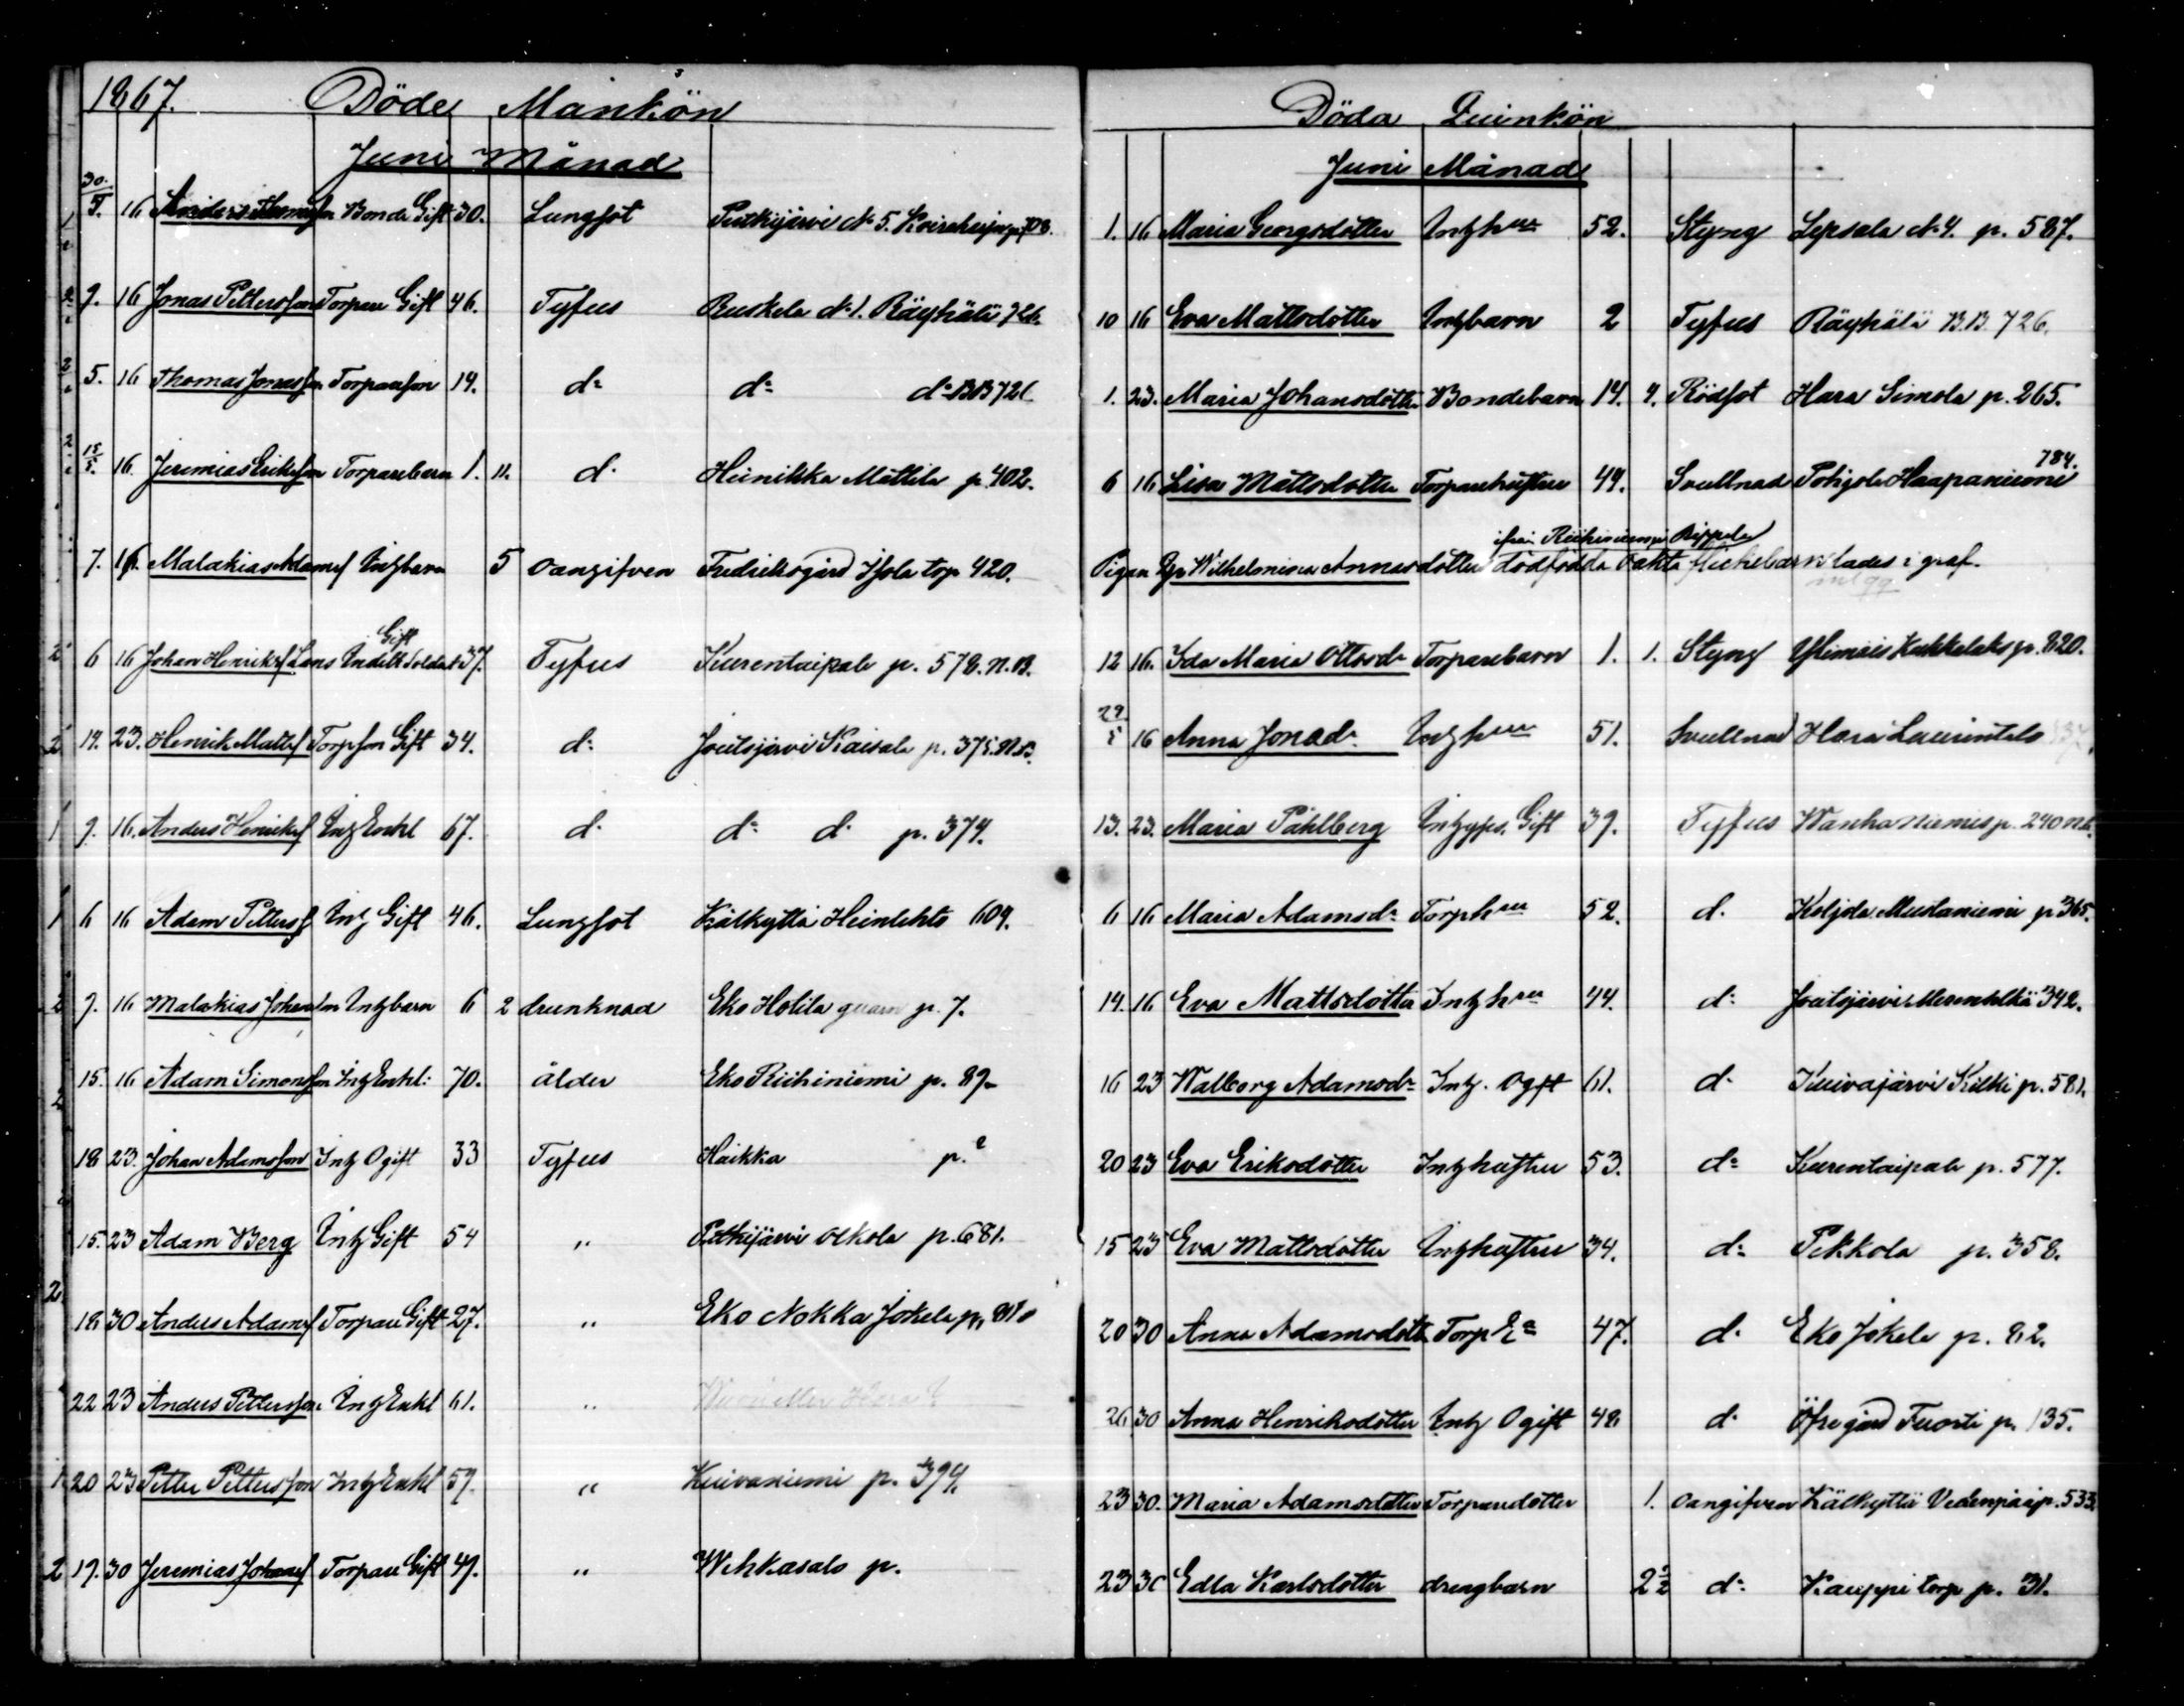 1867. Döde Mankön
Juni Månad
30/5. 16 Anders Thomasson Bonde Gift 30. Lungsot Putkijärvi No 5.
9. 16 Jonas Pettersson Torpare Gift 46. Tyfus Ruskela No 1. Räyhälä 726.
5. 16 Thomas Jonasson Torpareson 14. do do do BB 726
15/5. 16. Jeremias Eriksson Torparebarn 1. 11. do Heinikka Mattila p. 402.
7. 16. Malakias Adamsf Inhbarn 5 oangifven Fredriksgård Isola torp 420.
6 16 Johan Henriksf Lans Indelt Soldat Gift 37. Tyfus Kurentaipale p. 578. N.B.
19. 23. Henrik Mattsf Torpson Gift 34. do Joutsjärvi Kaisala p. 375. N.B.
9. 16. Anders Henriksf Inh Enkl 67. do do do p. 374.
6 16 Adam Pettersf Inh Gift 46. Lungsot Kälkyttä Heinlehto 609.
9. 16 Malakias Johansson Inhbarn 6 2 drunknad Eko Holila quarn p. 7.
15. 16 Adam Simonsson Inh Enkl: 70. ålder Eko Riihiniemi p. 89.
18 23. Johan Adamsson Inh Ogift 33 Tyfus Haikka p. ?
15. 23 Adam Berg Inh Gift 54 " Putkijärvi Olkola p. 681.
18 30 Anders Adamsf Torpare Gift 27. " Eko Nokka Jokela p. 81
22 23 Anders Pettersson Inh Enkl 61. "
20 23 Petter Pettersson Inh Enkl 59. " Kuivaniemi p. 394.
19. 30 Jeremias Johansf Torpare Gift 49. " Wehkasalo p.
Döda Quinkön
Juni Månad
1. 16 Maria Georgsdotter Inhhru 52. Styng Lepsala No 4. p. 587.
10 16 Eva Mattsdotter Inhbarn 2 Tyfus Räyhälä B.B. 726.
1. 23. Maria Johansdotter Bondebarn 14. 4. Rödsot Hara Simola p. 265.
6 16 Lisa Mattsdotter Torparehustru 49. Svullnad Pohjola Haapaniemi 784.
ifrån Riihiniemi Rippula
Pigan Wilhelmina Annasdotters dödfödda oäkta flickebarn lades i graf.
12 16. Ida Maria Ottosdr Torparebarn 1. 1. Styng Yliniris Kukkolaks p. 820.
29/5 16 Anna Jonadr Inhhru 51. Svullnad Hara Laurintalo
13. 23. Maria Pahlberg Inhps. Gift 39. Tyfus Wanhaniemis p. 240 N.B.
6 16 Maria Adamsdr Torphru 52. do Koljola Mustaniemi p 365.
14. 16 Eva Mattsdotter Inhhru 44. do Joutsjärvi Merenkylä 342.
16 23 Walborg Adamsdr Inh. Ogft 61. do Kuivajärvi Kilkki p. 581.
20 23 Eva Eriksdotter Inhhustru 53. do Kurentaipale p. 577.
15 23 Eva Mattsdotter Inhhustru 34. do Pekkola p. 358.
20 30 Anna Adamsdottr Torp Ea 47. do Eko Jokela p. 82.
26 30 Anna Henriksdotter Inh Ogift 48 do Öfregård Tuorti p. 135.
23 30. Maria Adamsdotter Torparedotter 1. oangifven Kälkyttä Vedenpää p. 533.
23 30 Edla Karlsdotter drengbarn 2 1/2 do Kauppi torp p. 31.